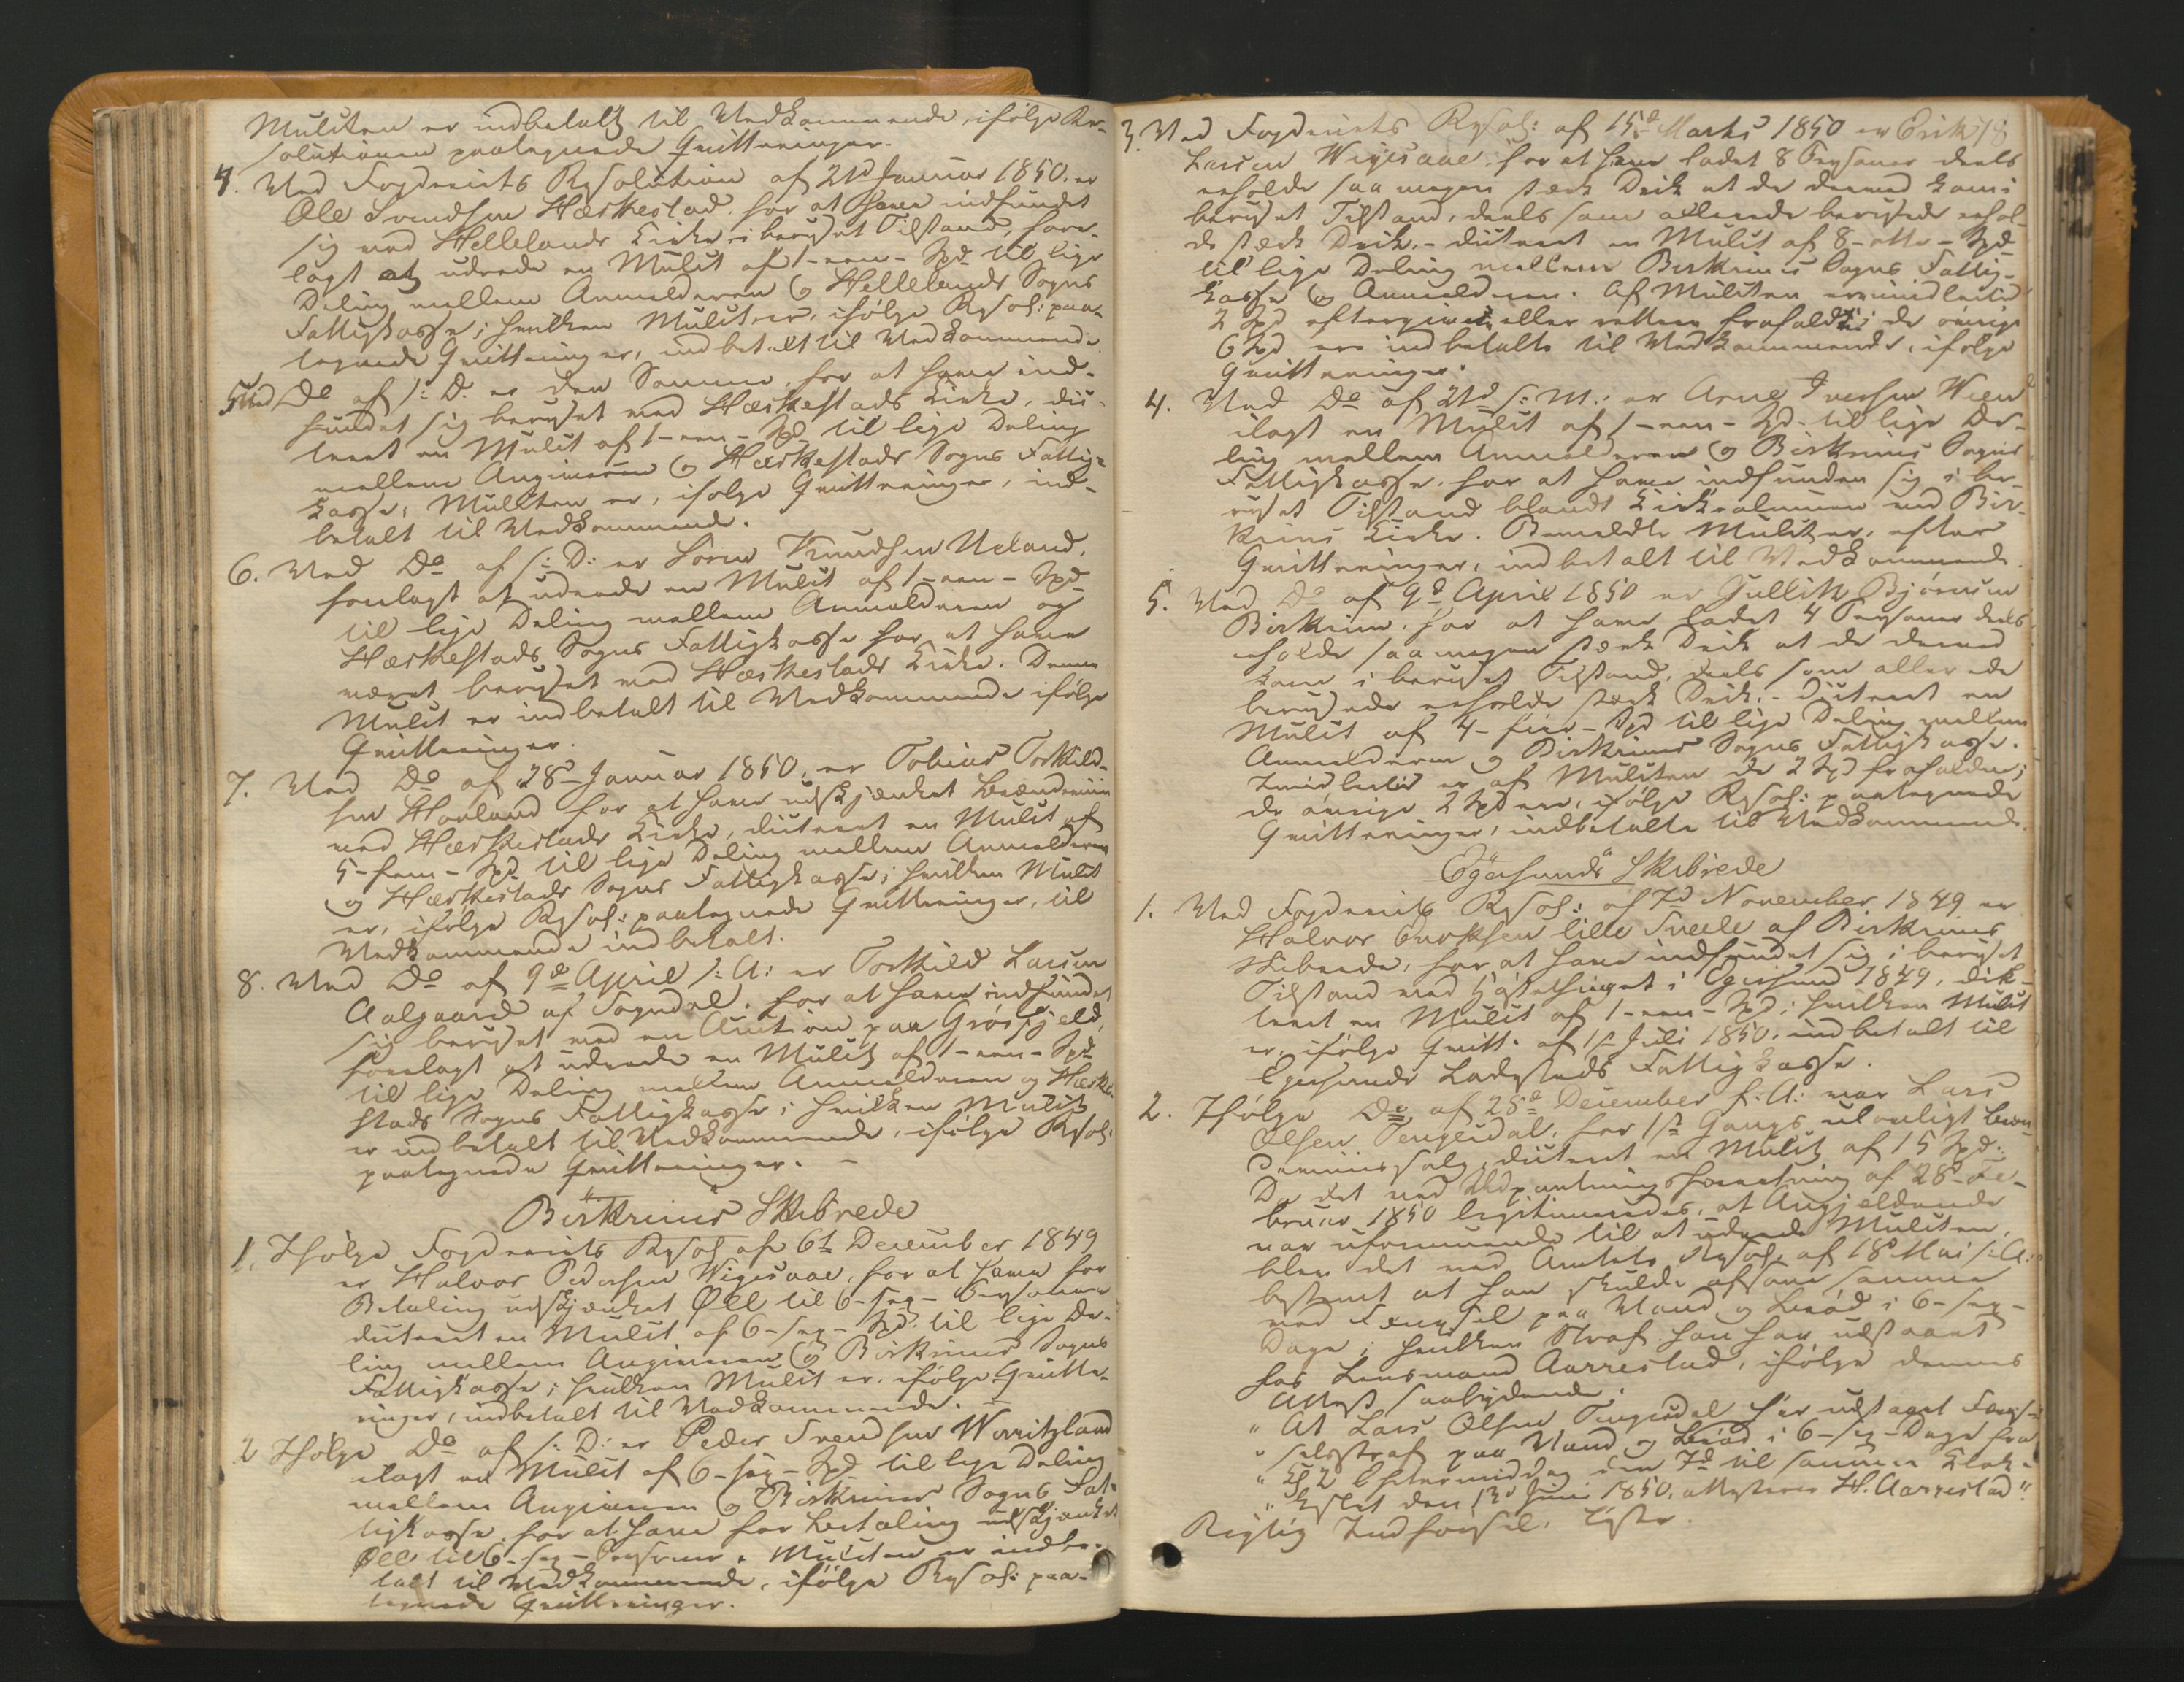 Mulcten er indbetalt til Vedkommende, ifølge Re-
solutionen paategnede Qvitteringer.
4. Ved Fogderiets Resolution af 21d Januar 1850. er
Ole Svendsen Hæskestad, for at have indfundet
sig ved Hellelands Kirke i beruset Tilstand, fore-
lagt at udrede en Mulct af 1 - een - Spd til lige
Deling mellem Anmelderen og Hellelands Sogns
Fattigkasse; hvilken Mulct er, ifølge Resol: paa-
tegnede Qvitteringer, indbetalt til Vedkommende.
5 Ved Do af s: D. er den Samme, for at have ind-
fundet sig beruset ved Hæskestads Kirke, dic-
teret en Mulct af 1 - een - Spd til lige Deling
mellem Angiveren og Hæskestads Sogns Fattig-
kasse; Mulcten er, ifølge Qvitteringer, ind-
betalt til Vedkommende.
6. Ved Do af s: D: er Sören Knudsen Ueland,
forelagt at udrede en Mulct af 1 - een - Spd
til lige Deling mellem Anmelderen og
Hæskestads Sogns Fattigkasse for at have
været beruset ved Hæskestads Kirke. Denne
Mulct er indbetalt til Vedkommende ifølge
Qvitteringer.
7. Ved Do af 28d Januar 1850, er Tobias Torkild-
sen Hovland for at have udskjænket Brændeviin
ved Hæskestads Kirke, dicteret en Mulct af
5 - fem - Spd til lige Deling mellem Anmelderen
og Hæskestads Sogns Fattigkasse; hvilken Mulct
er, ifølge Resol: paategnede Qvitteringer, til
Vedkommende indbetalt.
8. Ved Do af 9d April s: A: er Torkild Larsen
Aalgaard af Sogndal, for at have indfundet
sig beruset ved en Auction paa Grösfjeld,
forelagt at udrede en Mulct af 1 - een - Spd
til lige Deling mellem Anmelderen og Hæske-
stads Sogns Fattigkasse; hvilken Mulct
er indbetalt til Vedkommende, ifølge Resol:
paategnede Qvitteringer. -
Birkrims Skibrede
1. Ifølge Fogderiets Resol: af 6t December 1849
er Halvor Pedersen Wigesaae, for at have for
Betaling udskjænket Øll til 6 - sex - Personer
dicteret en Mulct af 6 - sex - Spd. til lige De-
ling mellem Angiveren og Birkrims Sogns
Fattigkasse; hvilken Mulct er, ifølge Qvitte-
ringer, indbetalt til Vedkommende. -
2 Ifølge Do af s: D: er Peder Svendsen Werritzland
ilagt en Mulct af 6 - sex - Spd til lige Deling
mellem Angiveren og Birkrims Sogns Fat-
tigkasse, for at have for Betaling udskjænket
Øll til 6 - sex - Personer. Mulcten er indbe-
talt til Vedkommende, ifølge Resol: paa-
tegnede Qvitteringer.
3. Ved Fogderiets Resol: af 15d Marts 1850 er Erik 18
Larsen Wigesaae, for at have ladet 8 Personer deels
erholde saa megen stærk Drik at de derved kom i
beruset Tilstand, deels som allerede berusede erhol-
de stærk Drik, - dicteret en Mulct af 8 - otte - Spd
til lige Deling mellem Birkrims Sogns Fattig-
kasse og Anmelderen. Af Mulcten er imidlertid
2 Spd eftergivet eller retten frafaldt; de øvrige
6 Spd ere indbetalte til Vedkommende, ifølge
Qvitteringer.
4. Ved Do af 21d s: M.: er Arne Iversen Ween
ilagt en Mulct af 1 - een - Spd. til lige De-
ling mellem Anmelderen og Birkrims Sogns
Fattigkasse, for at have indfunden sig i be-
ruset Tilstand blandt Kirkealmuen ved Bir-
krims Kirke. Bemeldte Mulct er, efter
Qvitteringer, indbetalt til Vedkommende.
5. Ved Do af 9d April 1850 er Gullik Bjørnsen
Birkrim, for at have ladet 4 Personer deels
erholde saa megen stærk Drik at de derved
kom i beruset Tilstand, deels som allerede
berusede erholde stærk Drik, - dicteret en
Mulct af 4 - fire - Spd til lige Deling mellem
Anmelderen og Birkrims Sogns Fattigkasse.
Imidlertid er af Mulcten de 2 Spd frafalden;
de øvrige 2 Spd ere, ifølge Resol: paategnede
Qvitteringer, indbetalte til Vedkommende.
Egersunds Skibrede
1. Ved Fogderiets Resol: af 7d November 1849 er
Halvor lille Svele af Birkrims
Skibrede, for at have indfundet sig i beruset
Tilstand ved Høstethinget i Egersund 1849, dic-
teret en Mulct af 1 - een - Spd; hvilken Mulct
er, ifølge Qvitt. af 1st Juli 1850, indbetalt til
Egersunds Ladesteds Fattigkasse.
2. Ifølge Do af 28d December f: A: var Lars
Olsen Tengesdal, for 1st Gangs ulovligt Bræn-
deviinssalg, dicteret en Mulct af 15 Spd:
Da det ved Udpantningsforretning af 28d Fe-
bruar 1850 legitimeredes, at Angjeldende
var uformuende til at udrede Mulcten,
blev det ved Amtets Resol: af 18d Mai s: A:
bestemt at han skulde afsone samme
med Fængsel paa Vand og Brød i 6 - sex -
Dage; hvilken Straf han har udstaaet
hos Lensmand Aarrestad, ifølge dennes
Attest saalydende:
" At Lars Olsen Tengesdal har udstaaet Fæng-
" selsstraf paa Vand og Brød i 6 - sex - Dage fra
" Kl 2 Eftermiddag den 7d til samme Klok-
" keslet den 13d Juni 1850, attesteres H. Aarrestad".
Rigtig Indførsel,